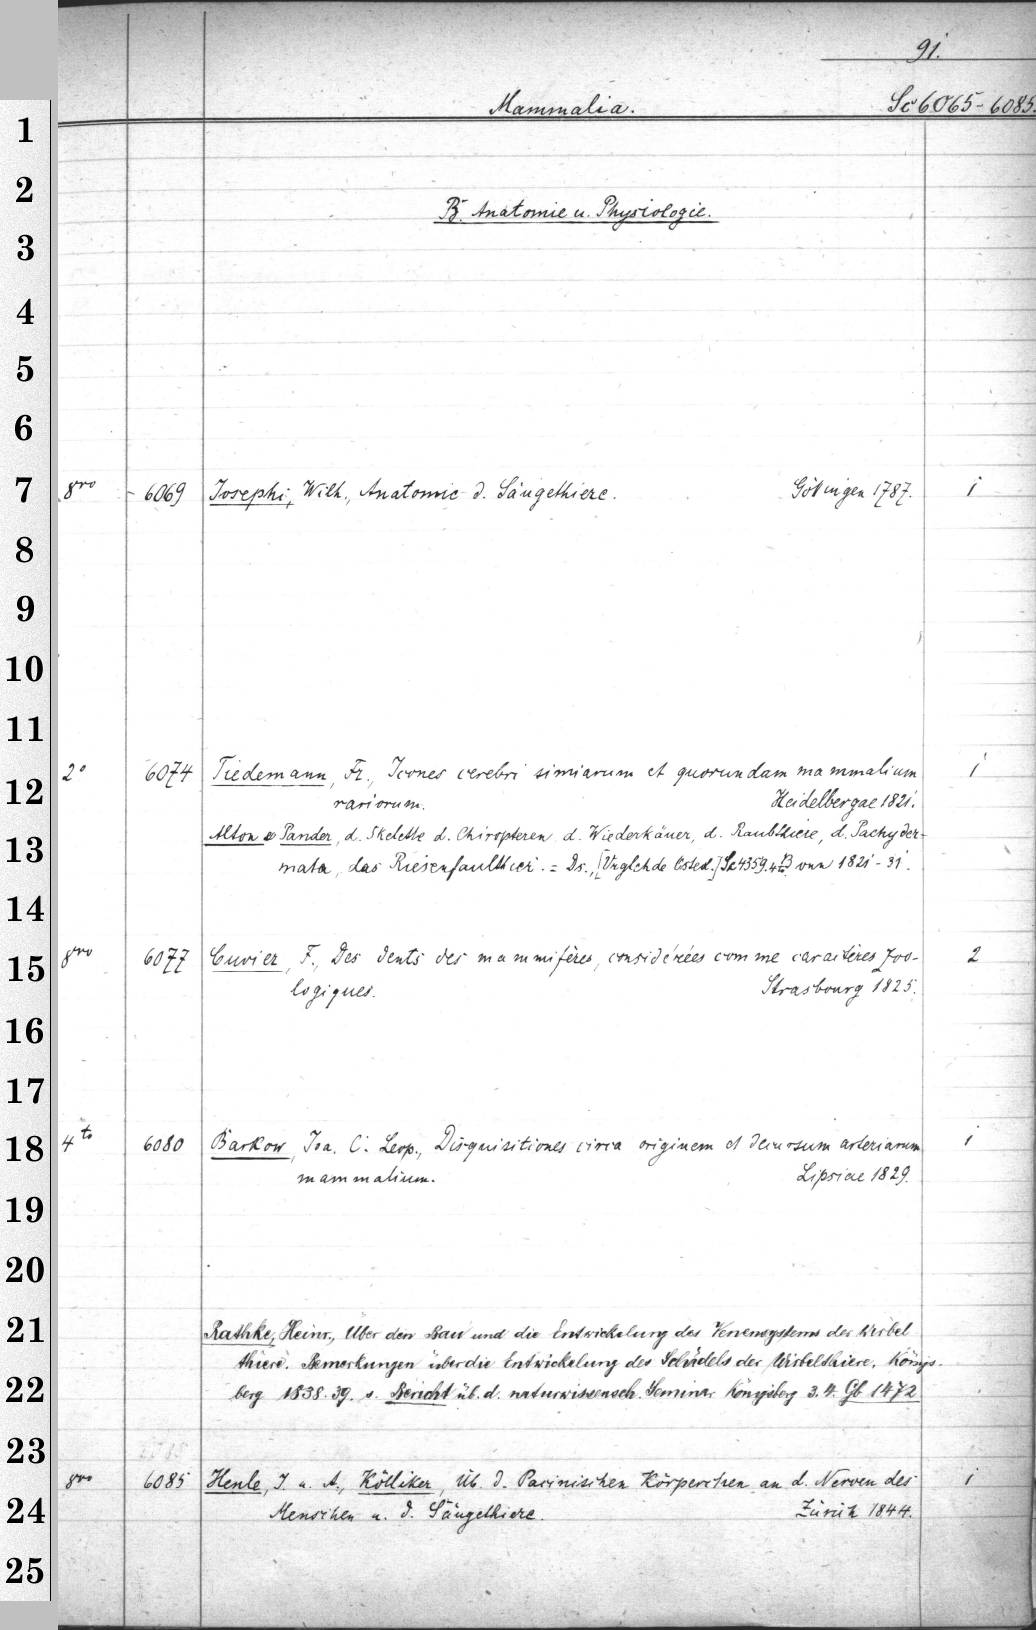 91.
Mammalia. Sc 6065-6085.
1
2
B. Anatomie u. Physiologie.
3
4
5
6
7 8vo 6069 Josephi, Wilh., Anatomie d. Säugethiere. Göttingen 1787. 1
8
9
10
11
2° 6074 Tiedemann, Fr., Icones cerebri simiarum et quorundam mammalium 1
12 rariorum. Heidelbergae 1821.
13 Alton & Pander, d. Skelette d. Chiropteren, d. Wiederkäuer, d. Raubthiere, d. Pachyder-
mata, das Riesenfaulthier. = Ds., [Vrglchde Osteol.] Sc 4359. 4to. Bonn 1821-31.
14
15 8vo 6077 Cuvier, F., Des dents des mammifères, considérées comme caractères zoo- 2
logiques. Strasbourg 1825.
16
17
18 4to 6080 Barkow, Joa. C. Leop., Disquisitiones circa originem et decursum arteriarum 1
mammalium. Lipsiae 1829.
19
20
21 Rathke, Heinr., Über den Bau und die Entwickelung des Venensystems der Wirbel
thiere. Bemerkungen über die Entwickelung des Schädels der Wirbelthiere. Königs-
22 berg 1838. 39. s. Bericht üb. d. naturwissensch. Seminar Königsberg 3. 4. Gb 1472
23
8vo 6085 Henle, J. u. A., Kölliker, Üb. d. Pacinischen Körperchen an d. Nerven des 1
24 Menschen u. d. Säugethiere. Zürich 1844.
25